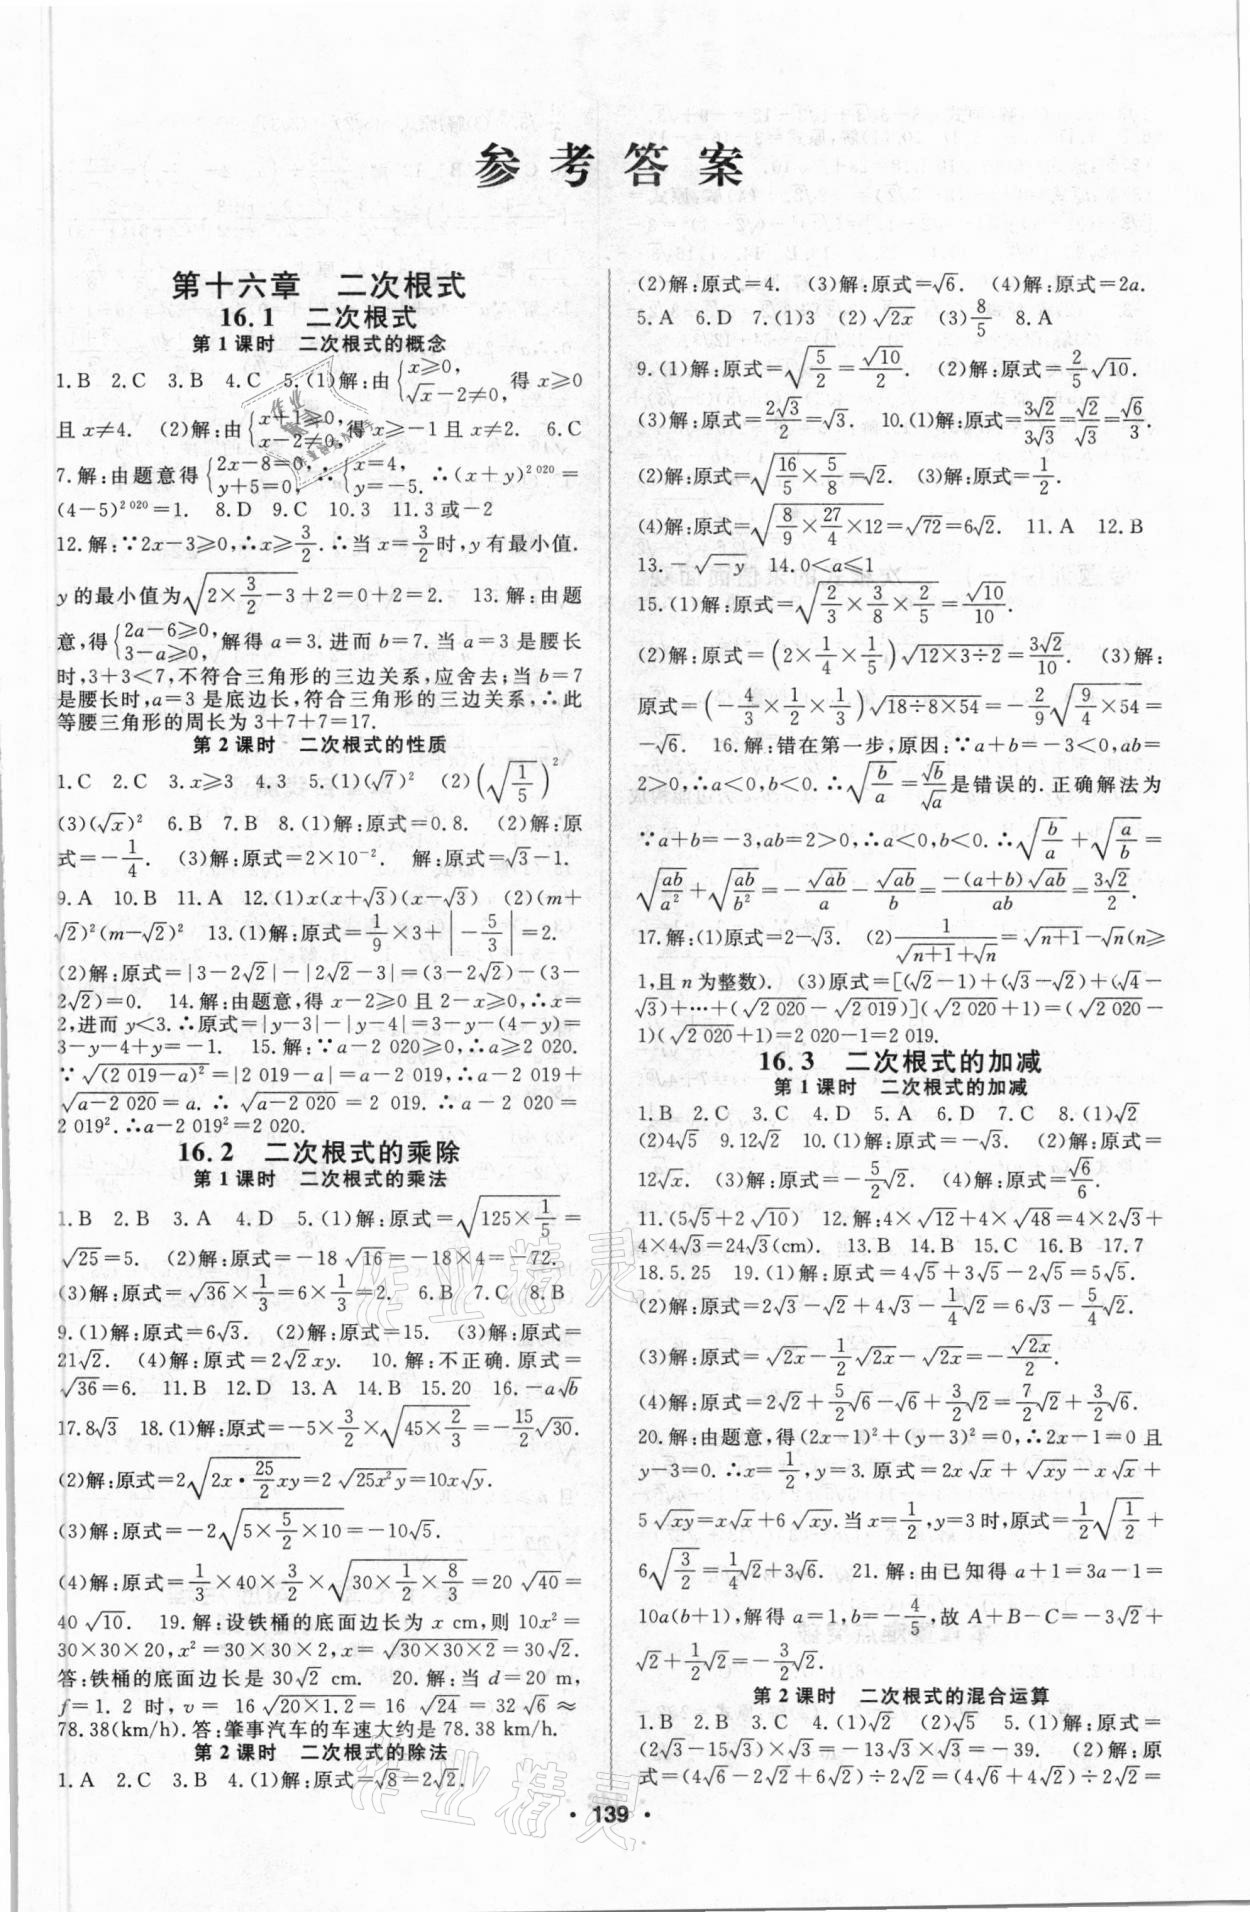 参考答案
第十六章 二次根式
16.1 二次根式
第1课时 二次根式的概念
1.B 2.C 3.B 4.C 5.(1)解:由{x≥0, √x-2≠0, 得 x≥0
且 x≠4. (2)解:由{x+1≥0, x-2≠0, 得 x≥-1 且 x≠2. 6.C
7.解:由题意得{2x-8=0, y+5=0, ∴{x=4, y=-5. ∴(x+y)^2 020=
(4-5)^2 020=1. 8.D 9.C 10.3 11.3或-2
12.解:∵2x-3≥0,∴x≥3/2.∴当 x=3/2时,y有最小值.
y的最小值为√(2×3/2-3)+2=0+2=2. 13.解:由题
意,得{2a-6≥0, 3-a≥0, 解得 a=3.进而 b=7.当 a=3 是腰长
时,3+3<7,不符合三角形的三边关系,应舍去;当 b=7
是腰长时,a=3 是底边长,符合三角形的三边关系,∴此
等腰三角形的周长为 3+7+7=17.
第2课时 二次根式的性质
1.C 2.C 3.x≥3 4.3 5.(1)(√7)² (2)(√(1/5))²
(3)(√x)² 6.B 7.B 8.(1)解:原式=0.8. (2)解:原
式=-1/4. (3)解:原式=2×10⁻². 解:原式=√3-1.
9.A 10.B 11.A 12.(1)x(x+√3)(x-√3) (2)(m+
√2)²(m-√2)² 13.(1)解:原式=1/9×3+|-5/3|=2.
(2)解:原式=|3-2√2|-|2√2-3|=(3-2√2)-(3-
2√2)=0. 14.解:由题意,得 x-2≥0 且 2-x≥0,∴x=
2,进而 y<3.∴原式=|y-3|-|y-4|=3-y-(4-y)=
3-y-4+y=-1. 15.解:∵a-2 020≥0,∴a≥2 020.
∵√((2 019-a)²)=|2 019-a|=a-2 019,∴a-2 019+
√(a-2 020)=a.∴√(a-2 020)=2 019.∴a-2 020=
2 019².∴a-2 019²=2 020.
16.2 二次根式的乘除
第1课时 二次根式的乘法
1.B 2.B 3.A 4.D 5.(1)解:原式=√(125×1/5)=
√25=5. (2)解:原式=-18√16=-18×4=-72.
(3)解:原式=√36×1/3=6×1/3=2. 6.B 7.C 8.B
9.(1)解:原式=6√3. (2)解:原式=15. (3)解:原式=
21√2. (4)解:原式=2√2xy. 10.解:不正确.原式=
√36=6. 11.B 12.D 13.A 14.B 15.20 16.-a√b
17.8√3 18.(1)解:原式=-5×3/2×√(45×2/3)=-15/2√30.
(2)解:原式=2√(2x·25/2xy)=2√(25x²y)=10x√y.
(3)解:原式=-2√(5×5/2×10)=-10√5.
(4)解:原式=1/3×40×3/2×√(30×1/2×8/3)=20√40=
40√10. 19.解:设铁桶的底面边长为 x cm,则 10x²=
30×30×20,x²=30×30×2,x=√(30×30×2)=30√2.
答:铁桶的底面边长是 30√2 cm. 20.解:当 d=20 m,
f=1.2 时,v=16√(20×1.2)=16√24=32√6≈
78.38(km/h).答:肇事汽车的车速大约是 78.38 km/h.
第2课时 二次根式的除法
1.A 2.C 3.B 4.(1)解:原式=√8=2√2.
(2)解:原式=4. (3)解:原式=√6. (4)解:原式=2a.
5.A 6.D 7.(1)3 (2)√(2x) (3)8/5 8.A
9.(1)解:原式=√(5/2)=√10/2. (2)解:原式=2/5√10.
(3)解:原式=2√3/2=√3. 10.(1)解:原式=3√2/3√3=√2/√3=√6/3.
(2)解:原式=√(16/5×5/8)=√2. (3)解:原式=1/2.
(4)解:原式=√(8/9×27/4×12)=√72=6√2. 11.A 12.B
13.-√(-y) 14.0<a≤1
15.(1)解:原式=√(2/3×3/8×2/5)=√10/10.
(2)解:原式=(2×1/4×1/5)√(12×3÷2)=3√2/10. (3)解:
原式=(-4/3×1/2×1/3)√(18÷8×54)=-2/9√(9/4×54)=
-√6. 16.解:错在第一步,原因:∵a+b=-3<0,ab=
2>0,∴a<0,b<0.∴√(b/a)=√b/√a是错误的.正确解法为
∵a+b=-3,ab=2>0,∴a<0,b<0.∴√(b/a)+√(a/b)=
√(ab/a²)+√(ab/b²)=-√ab/a-√ab/b=-(a+b)√ab/ab=3√2/2.
17.解:(1)原式=2-√3. (2)1/(√(n+1)+√n)=√(n+1)-√n(n≥
1,且 n 为整数). (3)原式=[(√2-1)+(√3-√2)+(√4-
√3)+…+(√2 020-√2 019)](√2 020+1)=(√2 020-
1)(√2 020+1)=2 020-1=2 019.
16.3 二次根式的加减
第1课时 二次根式的加减
1.B 2.C 3.C 4.D 5.A 6.D 7.C 8.(1)√2
(2)4√5 9.12√2 10.(1)解:原式=-√3. (2)解:原式=
12√x. (3)解:原式=-5/2√2. (4)解:原式=√6/6.
11.(5√5+2√10) 12.解:4×√12+4×√48=4×2√3+
4×4√3=24√3(cm). 13.B 14.B 15.C 16.B 17.7
18.5.25 19.(1)解:原式=4√5+3√5-2√5=5√5.
(2)解:原式=2√3-√2+4√3-1/4√2=6√3-5/4√2.
(3)解:原式=√(2x)-1/2√(2x)-√(2x)=-√(2x)/2.
(4)解:原式=2√2+5/2√6-√6+3/2√2=7/2√2+3/2√6.
20.解:由题意,得(2x-1)²+(y-3)²=0,∴2x-1=0 且
y-3=0.∴x=1/2,y=3.原式=2x√x+√xy-x√x+
5√xy=x√x+6√xy.当 x=1/2,y=3 时,原式=1/2√(1/2)+
6√(3/2)=1/4√2+3√6. 21.解:由已知得 a+1=3a-1=
10a(b+1),解得 a=1,b=-4/5,故 A+B-C=-3√2+
√2+1/2√2=-3/2√2.
第2课时 二次根式的混合运算
1.B 2.B 3.C 4.(1)√2 (2)√5 5.(1)解:原式=
(2√3-15√3)×√3=-13√3×√3=-39. (2)解:原
式=(4√6-2√2+6√2)÷2√2=(4√6+4√2)÷2√2=
• 139 •
作业精灵
作业精灵